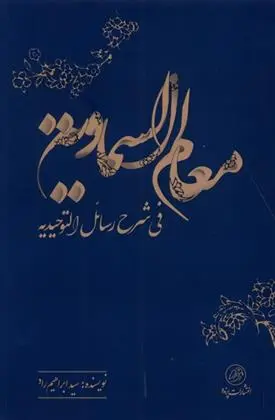 معالم السماویة
فی شرح رسائل التوحیدیه
نویسنده: سید ابراهیم راد